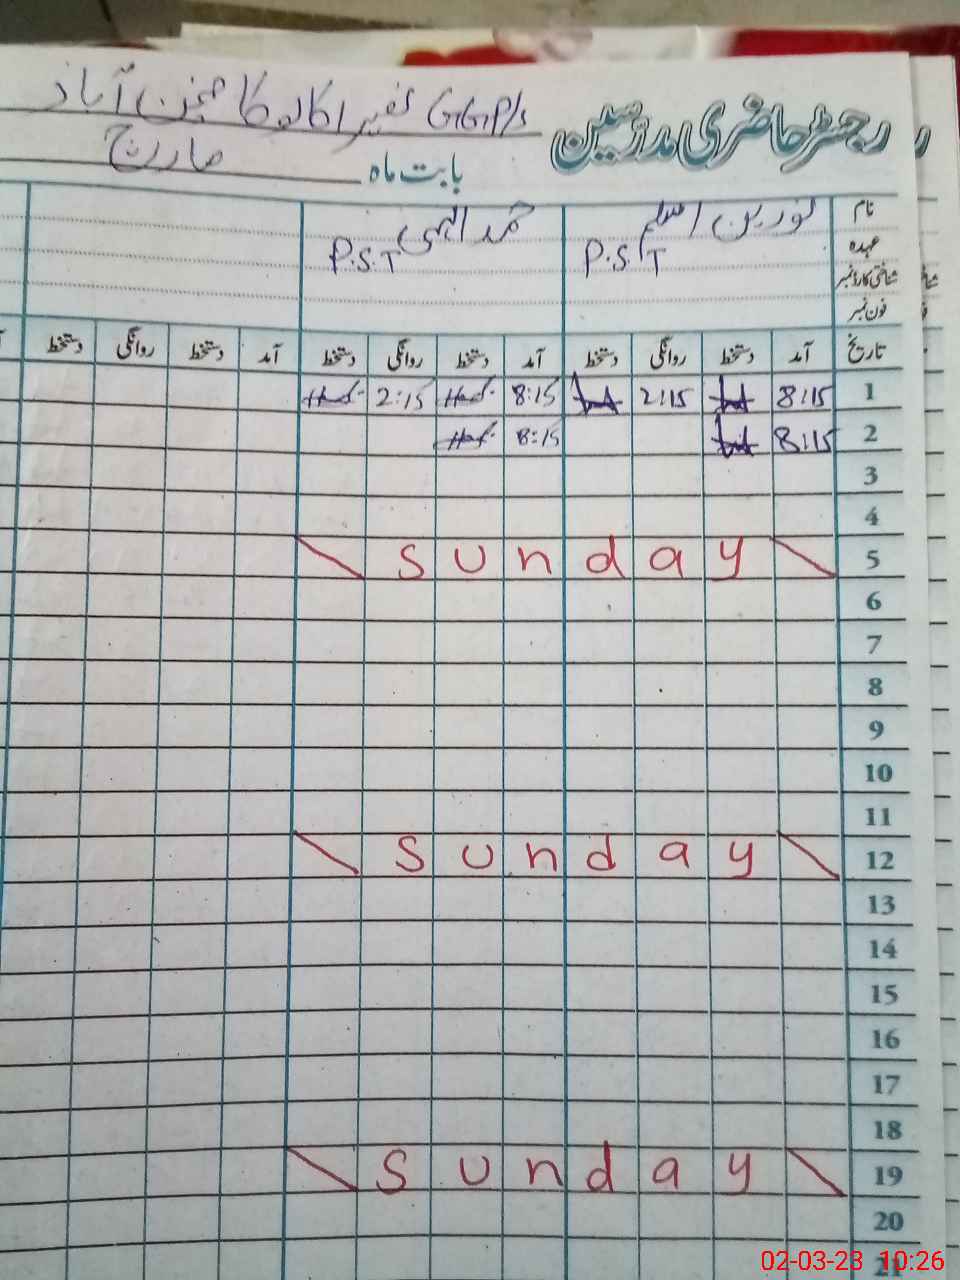 رجسٹر حاضری مدرسین G.G.P/s فقیر اکا
بابت ماہ مارچ
نام نورین اسلم حمد الہی
عہدہ P.S.T P.S.T
شناختی کارڈ نمبر
فون نمبر
تاریخ آمد دستخط روانگی دستخط آمد دستخط روانگی دستخط آمد دستخط روانگی دستخط
1 8:15 2:15 8:15 2:15
2 8:15 8:15
3
4
5 Sunday
6
7
8
9
10
11
12 Sunday
13
14
15
16
17
18
19 Sunday
20
21
02-03-23 10:26